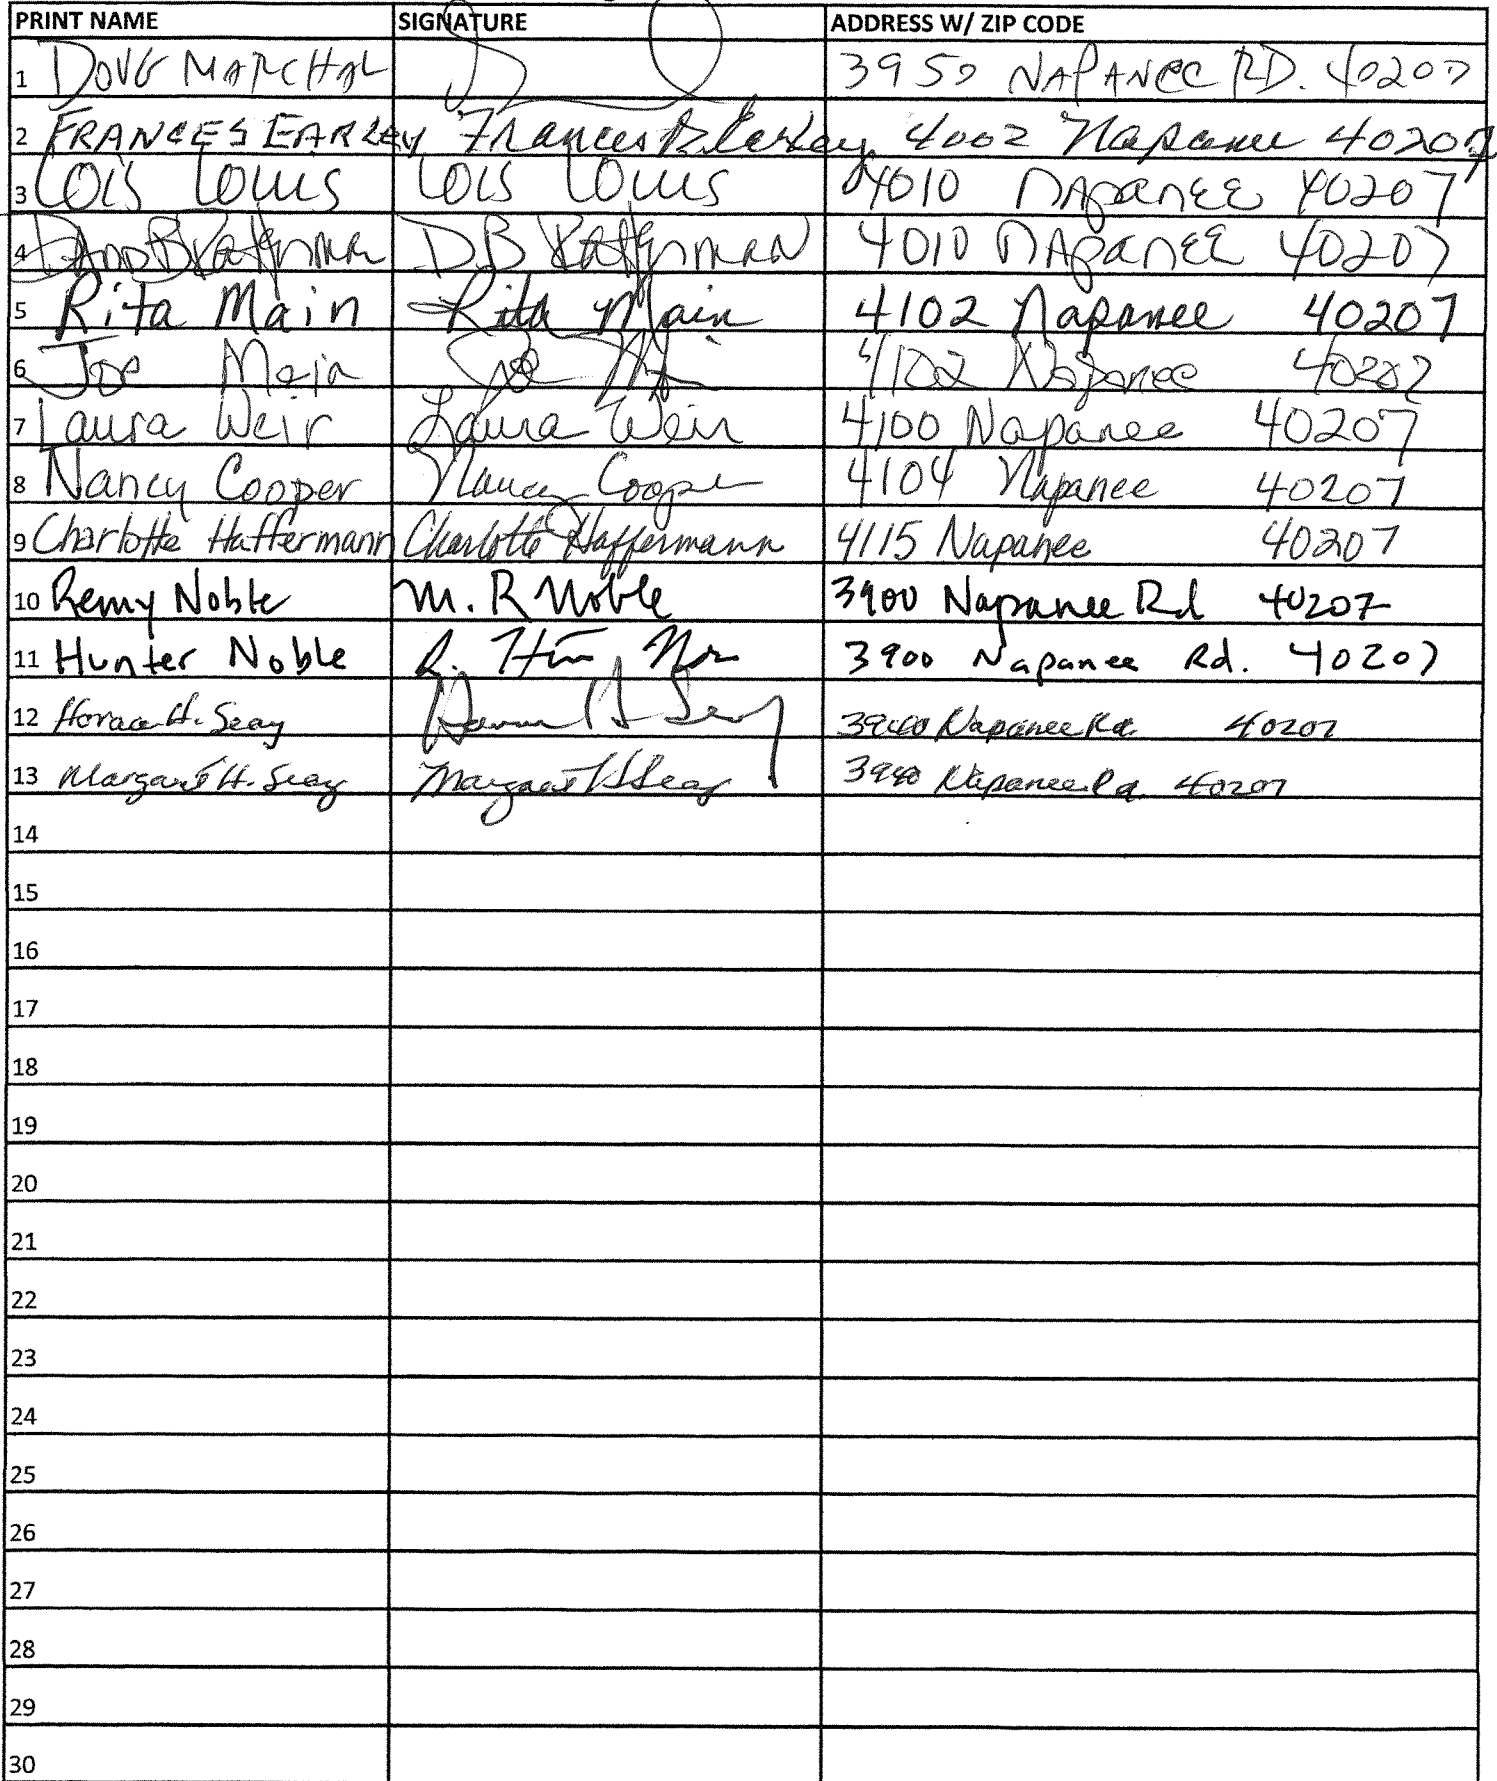 PRINT NAME SIGNATURE ADDRESS W/ ZIP CODE
1 DOUG MARCHAL 3950 NAPANEE RD. 40207
2 FRANCES EARLEY Frances B Earley 4002 Napanee 40207
3 Lois Louis Lois Louis 4010 Napanee 40207
4 DB 4010 NAPANEE 40207
5 Rita Main Rita Main 4102 Napanee 40207
6 Joe Main Joe 4102 Napanee 40207
7 Laura Weir Laura Weir 4100 Napanee 40207
8 Nancy Cooper Nancy Cooper 4104 Napanee 40207
9 Charlotte Haffermann Charlotte Haffermann 4115 Napanee 40207
10 Remy Noble M. R Noble 3900 Napanee Rd 40207
11 Hunter Noble R. 3900 Napanee Rd. 40207
12 Horace H. Seay H Seay Napanee Rd. 40207
13 Margaret H. Seay Margaret H Seay Napanee Rd 40207
14
15
16
17
18
19
20
21
22
23
24
25
26
27
28
29
30